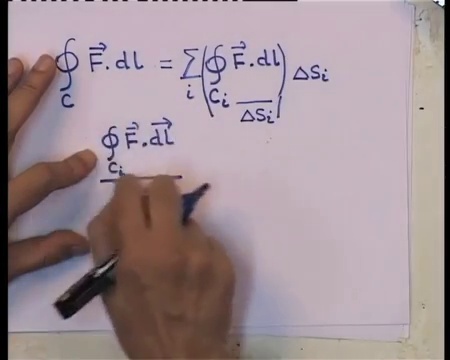 ∮_C F⃗ . dl = Σ_i ( ∮_{C_i} F⃗ . dl / ΔS_i ) ΔS_i
∮_{C_i} F⃗ . dl⃗